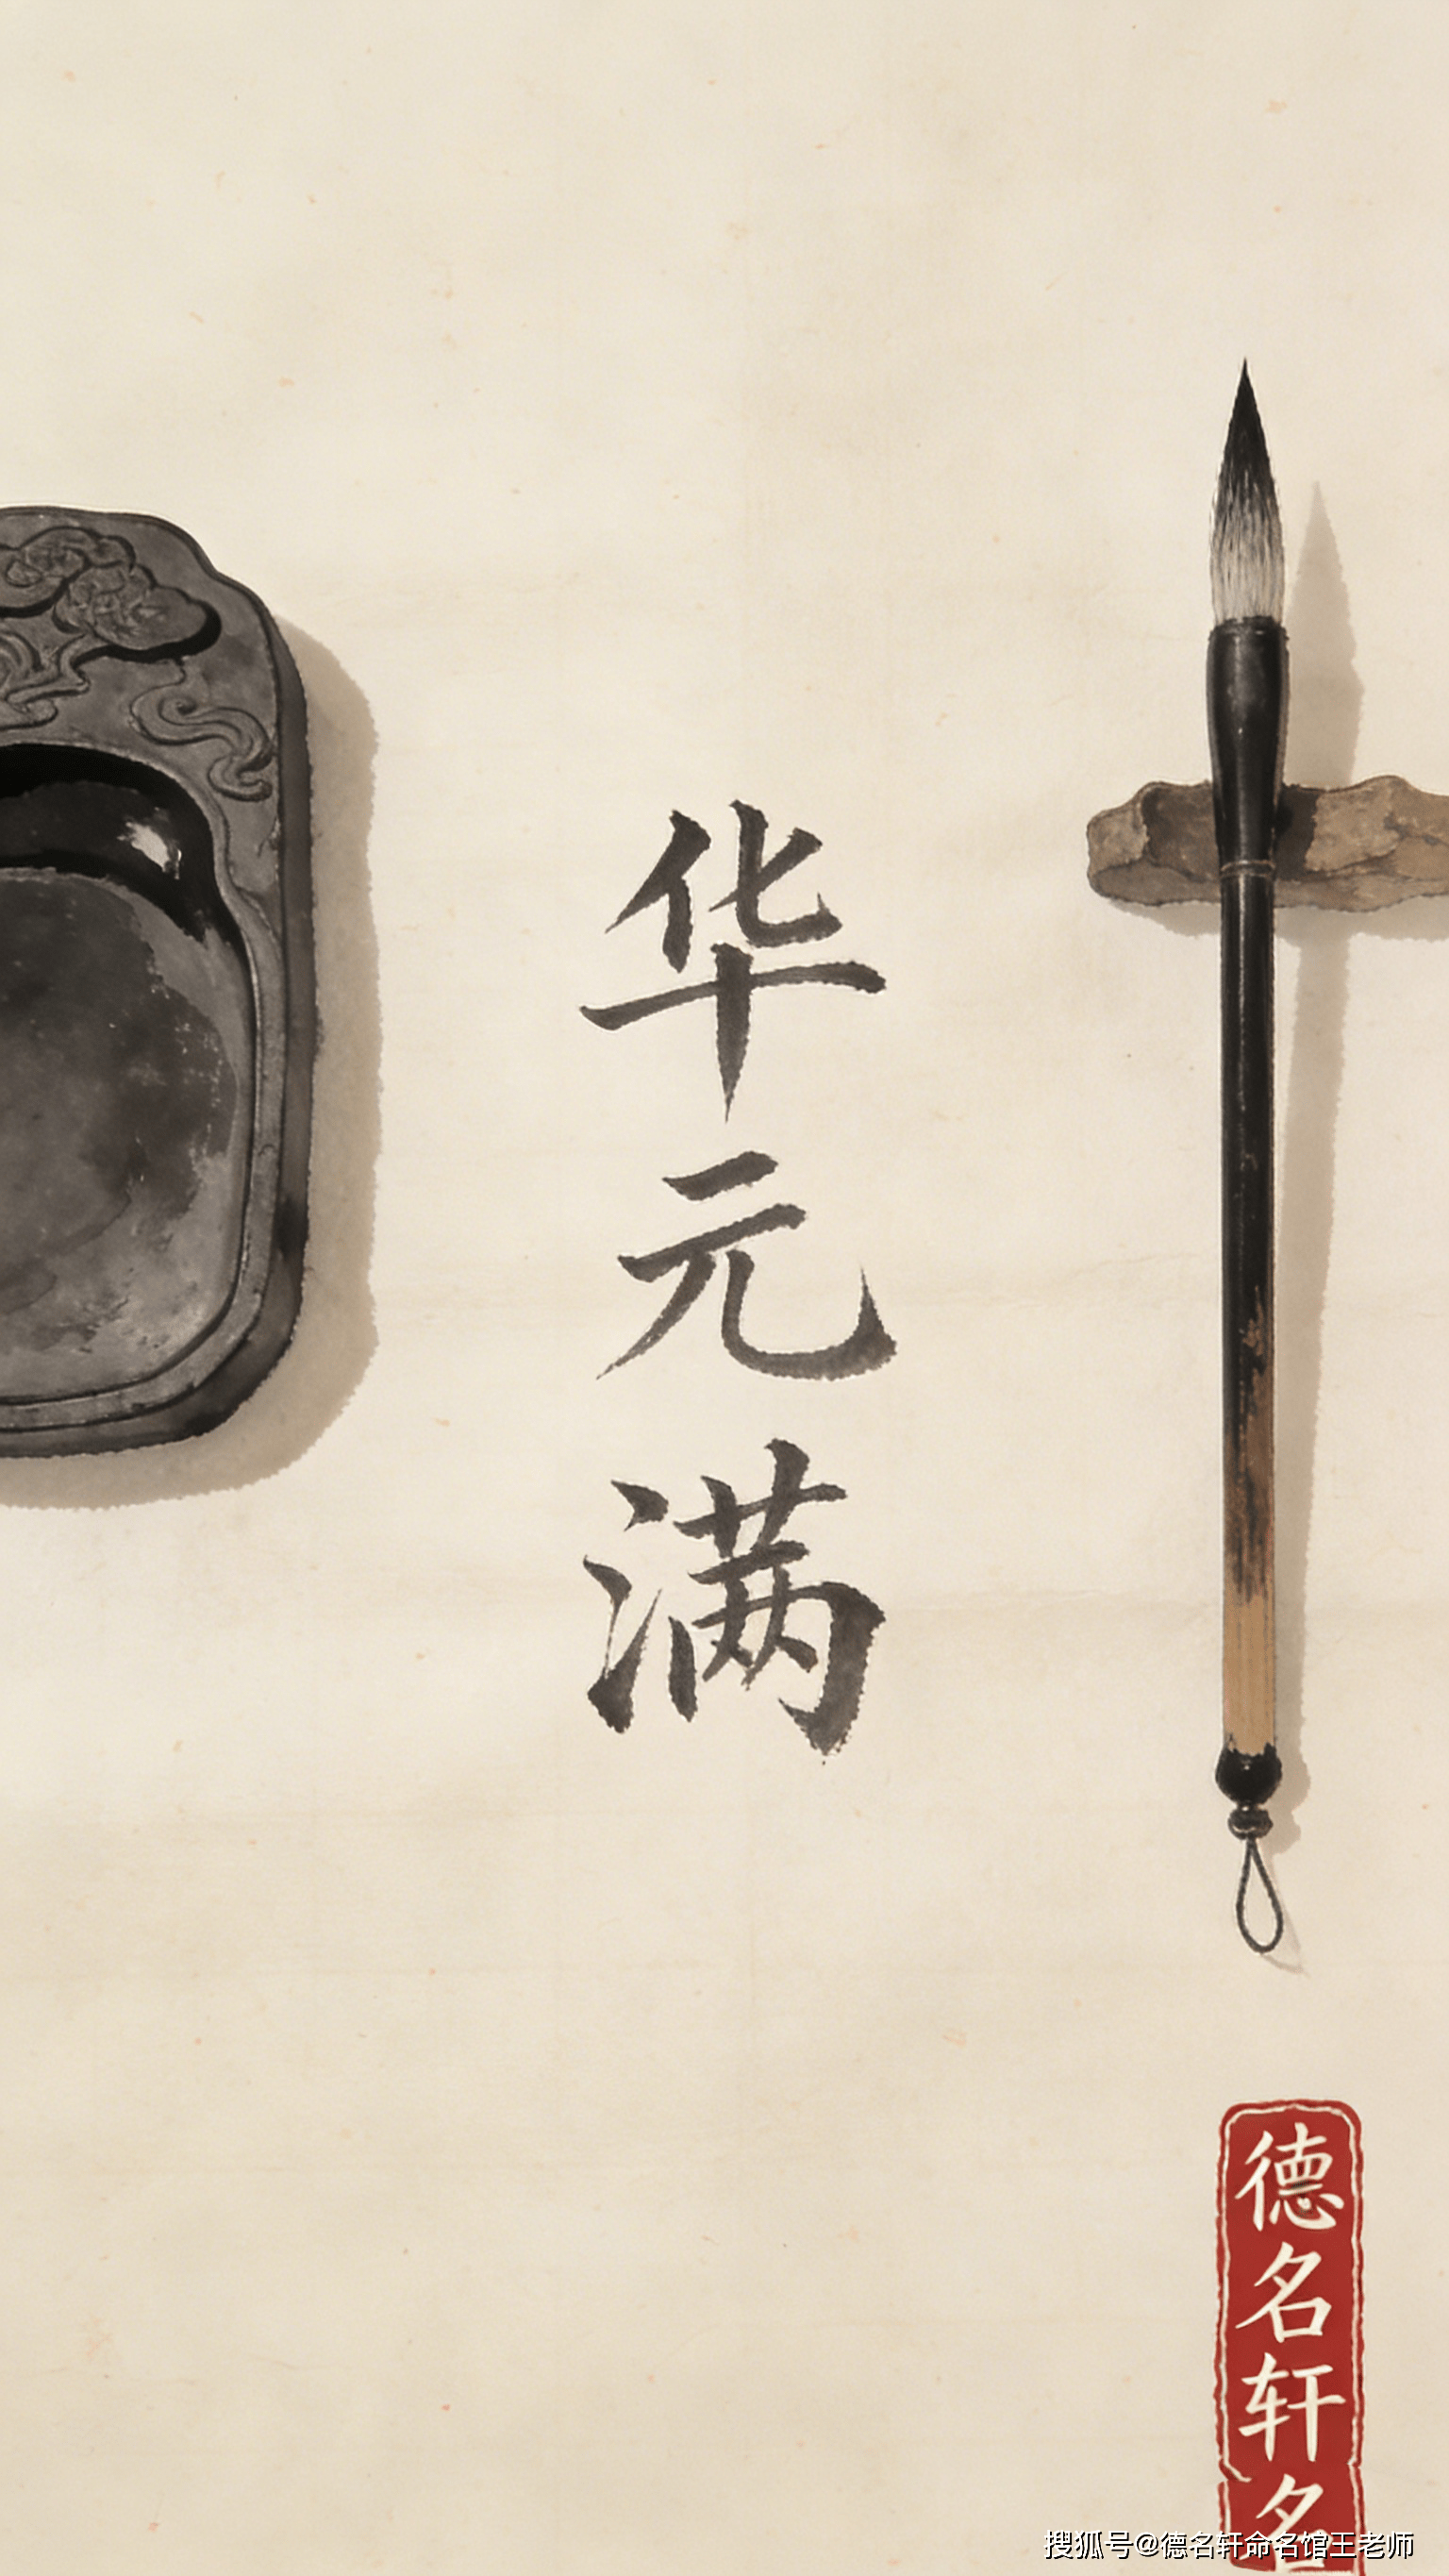 华元满
德名轩名
搜狐号@德名轩命名馆王老师